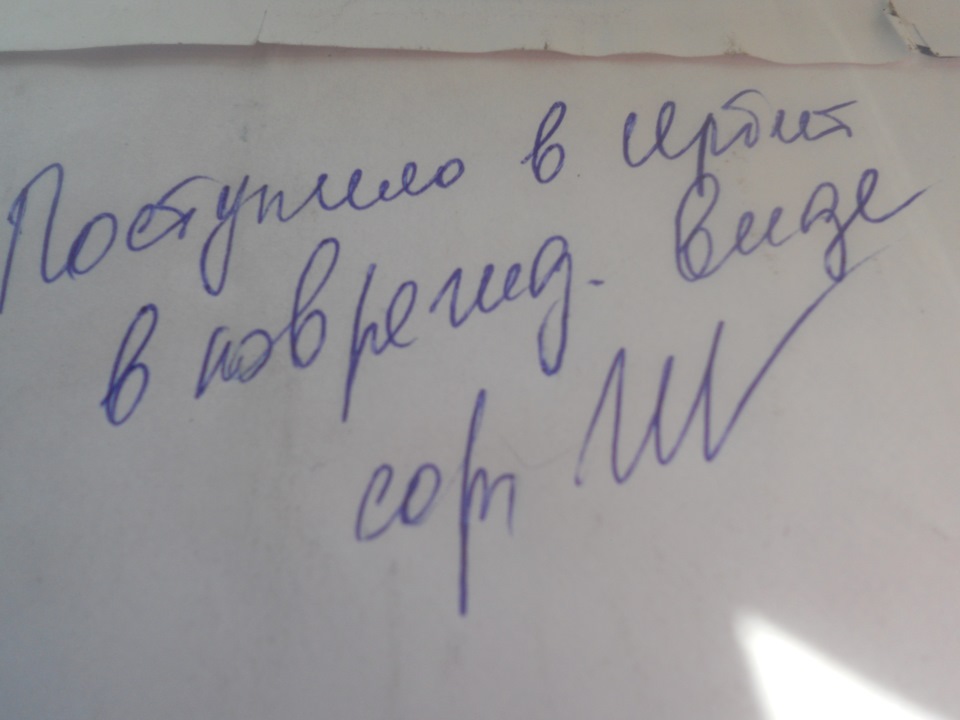 Поступило в Ирбит
в поврежд. виде
сорт